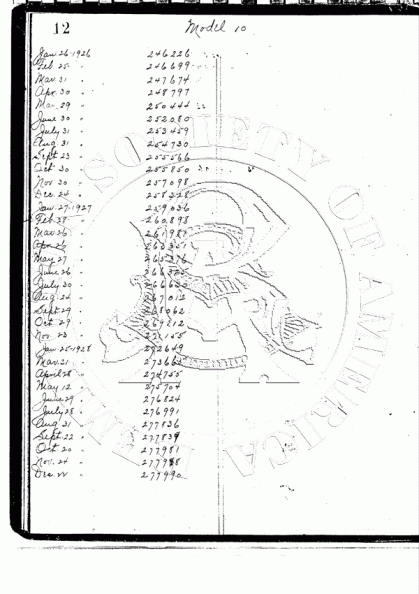 12
Model 10
Jan 26-1926 246226
Feb. 25 " 246699
Mar. 31 " 247674
Apr. 30 " 248797
Mar. 29 " 250444
June 30 " 252080
July 31 " 253459
Aug 31 " 254730
Sept 23 " 255566
Oct 30 " 255850
Nov 30 " 257098
Dec. 24 " 258328
Jan. 27-1927 259036
Feb. 28 " 260898
Mar 26 "
Apr. 26 "
May 27 " 265376
June 26 "
July 30 "
Aug. 26 " 267012
Sept. 29 " 268062
Oct 29 " 269212
Nov. 23 "
Jan 25-1928 272649
Mar. 21 " 273662
April 28 " 274755
May 12 " 275704
June 29 " 276824
July 28 " 276991
Aug 31 " 277836
Sept. 22 " 277839
Oct 20 " 277981
Nov. 24 " 277988
Dec. 22 " 277990
SOCIETY OF AMERICA